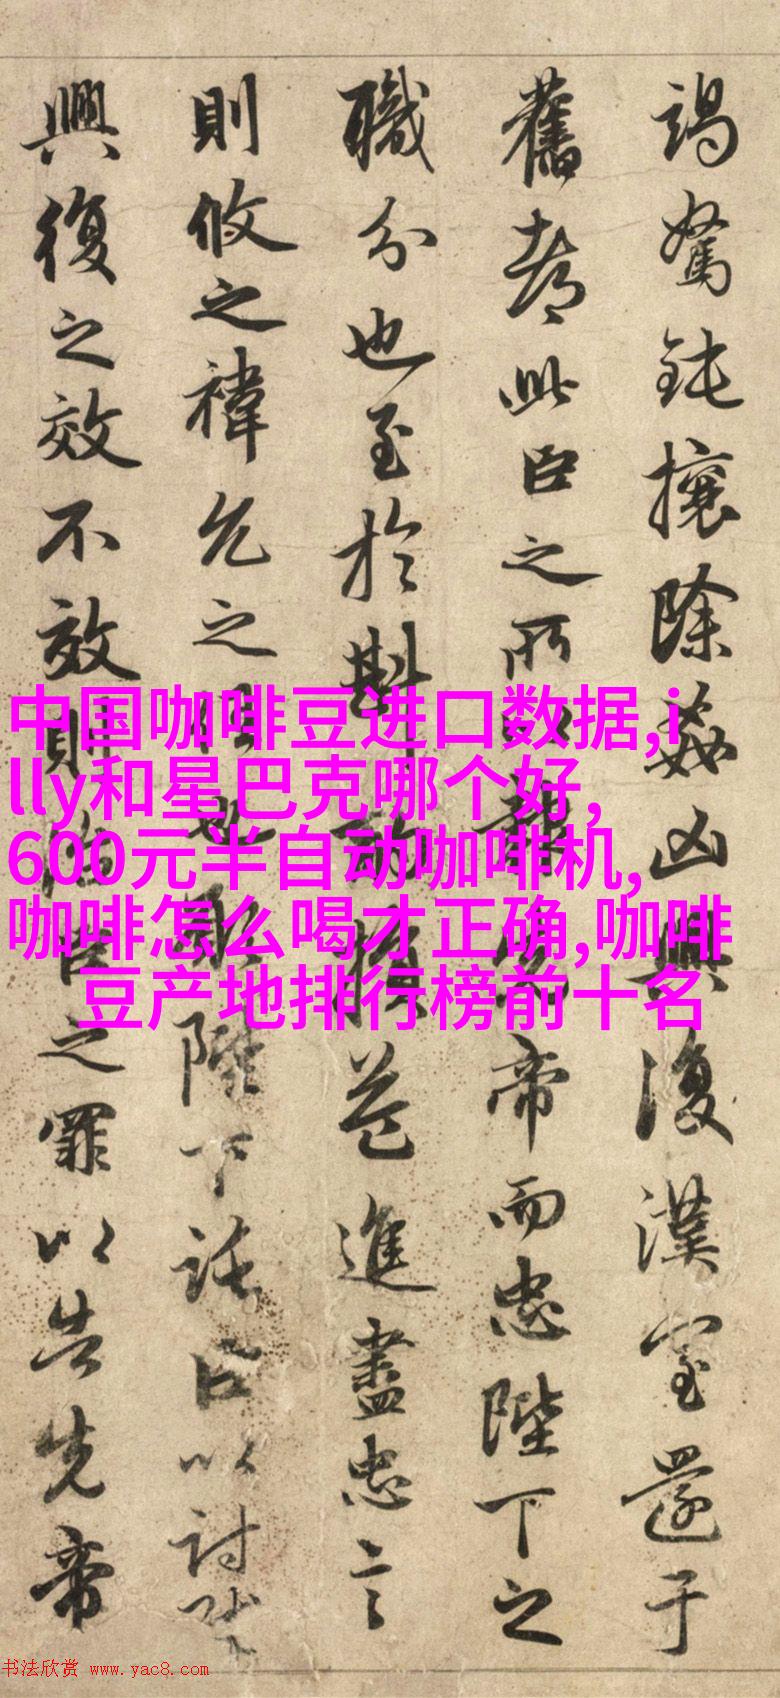 竭駑鈍攘除姦凶興復漢室還于
舊都此臣之所以報先帝而忠陛下之
職分也至於斟酌損益進盡忠言
則攸之褘允之任也願陛下託臣以討賊
興復之效不效則治臣之罪以告先帝
中国咖啡豆进口数据,i
lly和星巴克哪个好,
600元半自动咖啡机,
咖啡怎么喝才正确,咖啡
豆产地排行榜前十名
书法欣赏 www.yac8.com